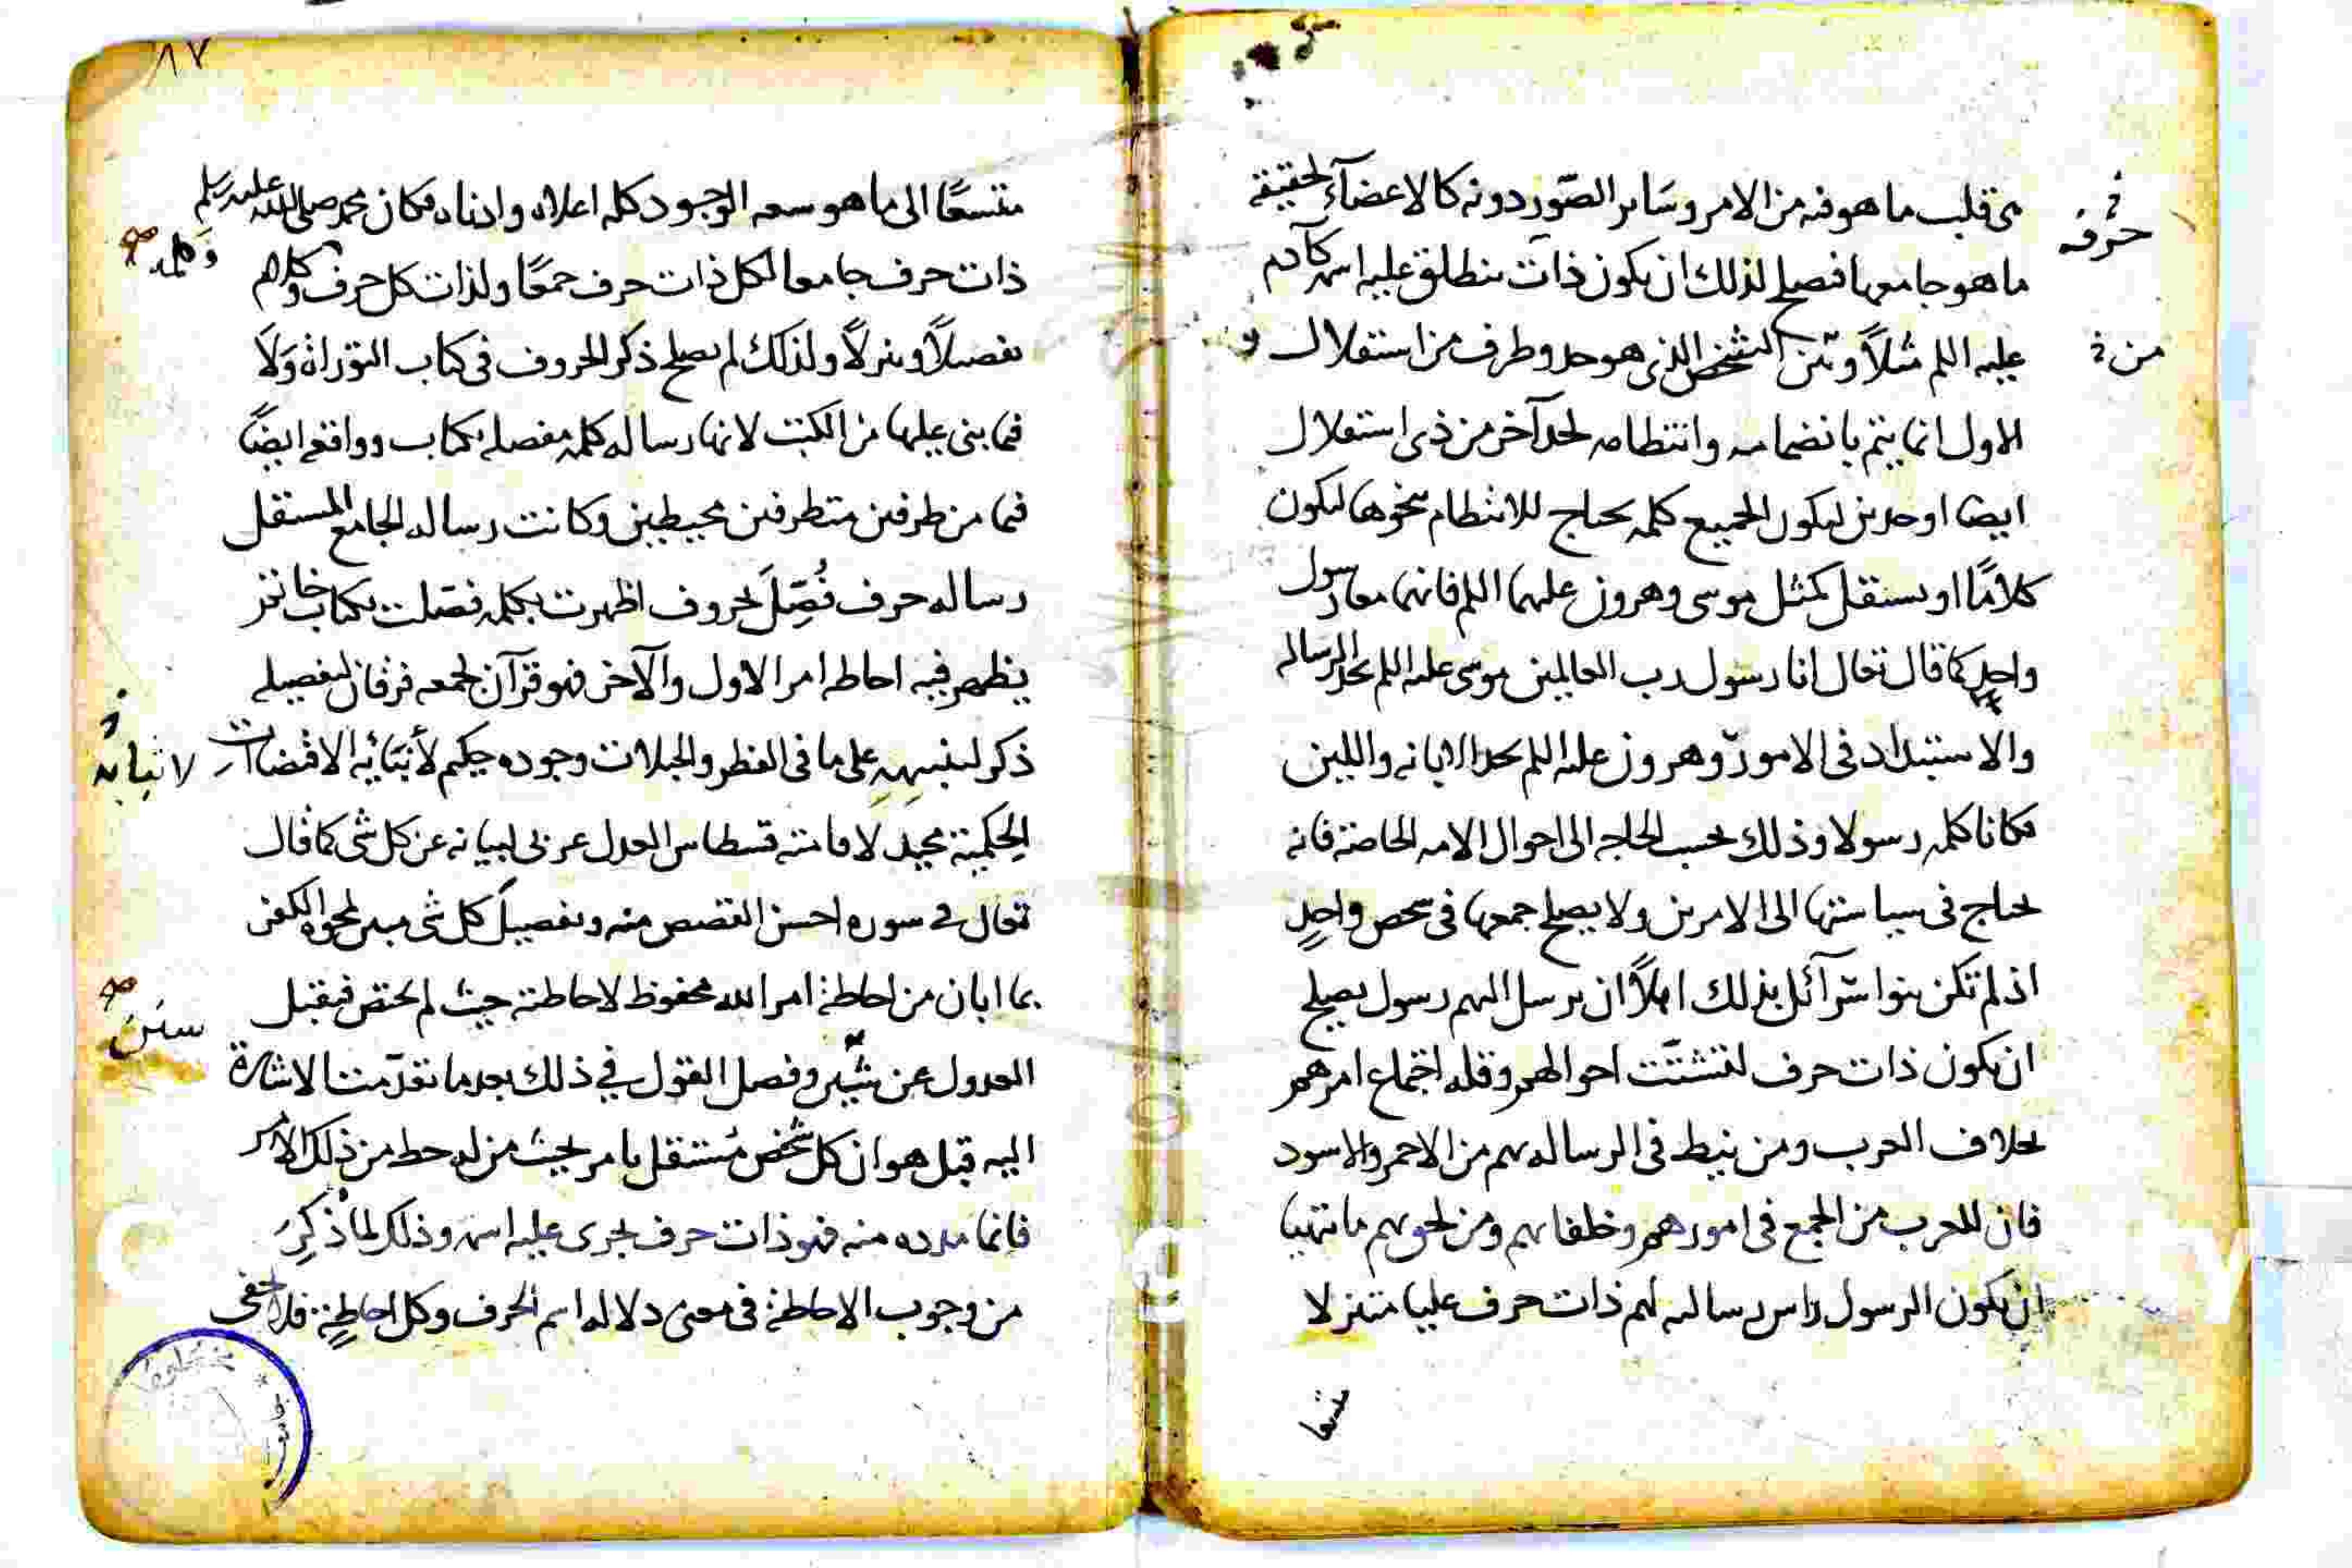 هى قلب ما هو فيه من الامر وسَاير الصّور دونه كالاعضآء لحقيقة
ما هو جامعها فتصلح لذلك ان يكون ذات ينطلق عليه اسمه كآدم
عليه اللم مثلاً وبين الشخص الذى هو حد وطرف من استقلال
الاول انما يتم بانضمامه وانتظامه لحد آخر من ذى استقلال
ايضا او حدين ليكون الجميع كلمه يحتاج للانتظام بنحوها ليكون
كلامًا او يستقل كمثل موسى وهرون عليهما اللم فانهما معا رسول
واحدٍ كما قال تعالى انا رسول رب العالمين موسى عليه اللم بحد الرساله
والاستبداد فى الامور وهرون عليه اللم بحد الابانه واللين
فكانا كلمه رسولا وذلك بحسب الحاجه الى احوال الامه الخاصة فانه
يحتاج فى سياستها الى الامرين ولا يصلح جمعها فى شخص واحدٍ
اذ لم تكن بنوا سرآئل بذلك اهلاً ان يرسل اليهم رسول يصلح
ان يكون ذات حرف لتشتّت احوالهم وقله اجتماع امرهم
بخلاف العرب ومن نيط فى الرساله بهم من الاحمر والاسود
فان للعرب من الجمع فى امورهم وخلفايهم ومن لحق بهم ما تهيا
ان يكون الرسول راس رساله لهم ذات حرف عليا متنزلا
متسعا
حرف
من
٨٧
متسعًا الى ما هو سعه الوجود كله اعلاه وادناه فكان محمد صلى الله عليه وسلم
ذات حرف جامعا لكل ذات حرف جمعًا ولذات كل حرف وكلام
تفصيلاً وتنزلاً ولذلك لم يصلح ذكر الحروف فى كتاب التوراة وَلاَ
فيما بنى عليها من الكتب لانها رساله كلمه مفصله بكتاب وواقع ايضًا
فيما من طرفين متطرفين محيطين وكانت رساله الجامع المستقل
رساله حرف فُصِّلَ بحروف اظهرت بكلمه فصّلت بكتاب خاتم
يظهر فيه احاطه امر الاول والآخر فهو قرآن لجمعه فرقان لتفصيله
ذكر لتنبيهه على ما فى الفطر والجبلات وجوده حكيم لأنبائه الاقتضاات
الحِكمية مجيد لاقامته قسطاس العدل عربى لبيانه عن كل شى كما قال
تعالى فى سوره احسن القصص منه وتفصيلَ كل شى مبين لمحوه الكفر
بما ابان من احاطة امر الله محفوظ لاحاطته حيث لم يختص فيقبل
العدول عن سنن وفصل القول في ذلك بعد ما تقدّمت الاشارة
اليه قبل هو ان كل شخص مُستقل بامر بحيث من له حظ من ذلك الامر
فانما مدده منه فهو ذات حرف يجرى عليه اسمه وذلك لما ذُكِرَ
من وجوب الاحاطة فى معنى دلاله اسم الحرف وكل احاطةٍ فلا تخفى
وكلمه
لانبائه
سنَن